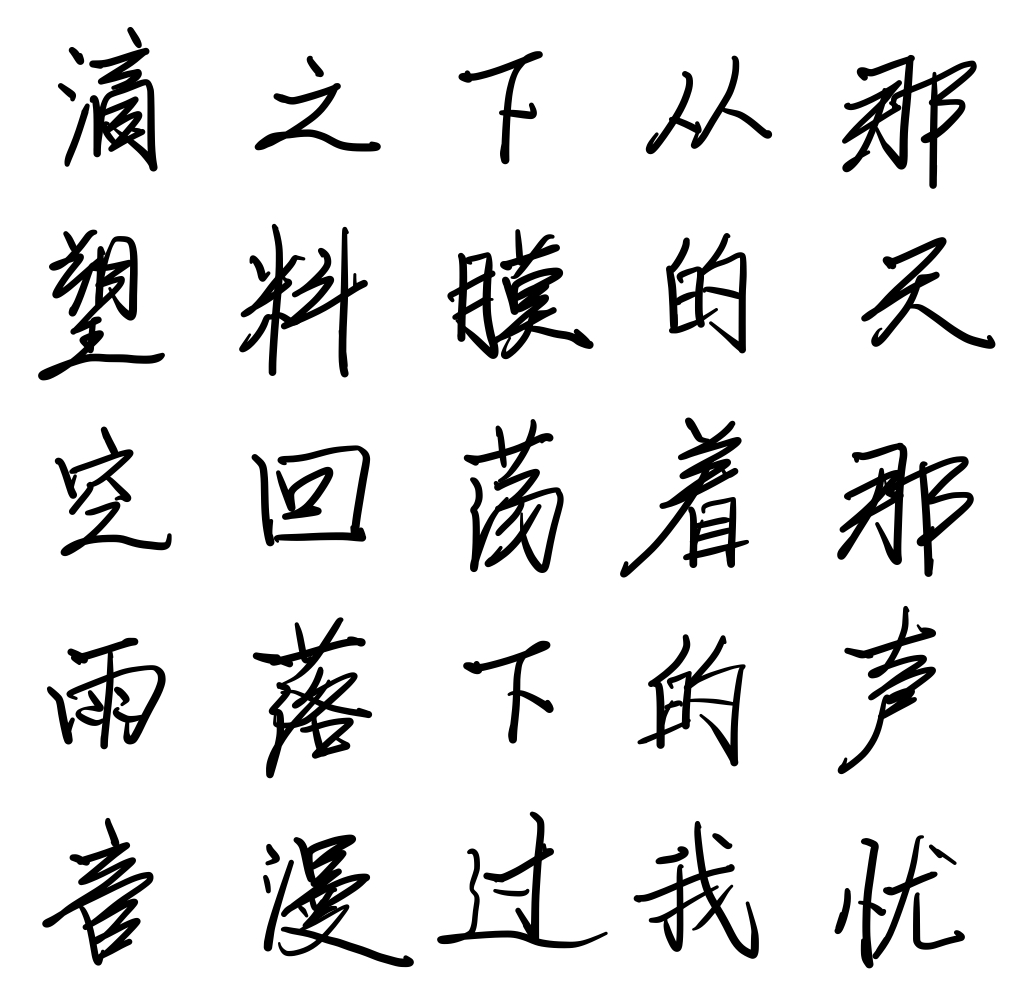 滴之下从那
塑料膜的天
空回荡着那
雨落下的声
音漫过我忧